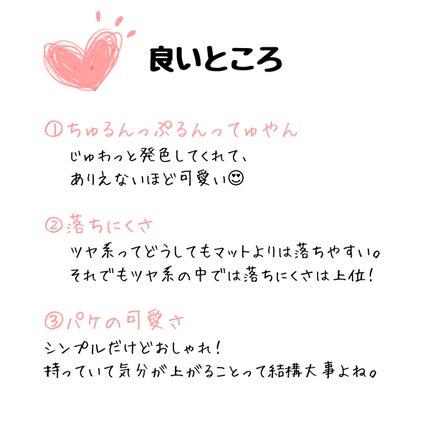 良いところ
①ちゅるんっぷるんってゅやん
じゅわっと発色してくれて、
ありえないほど可愛い😍
②落ちにくさ
ツヤ系ってどうしてもマットよりは落ちやすい。
それでもツヤ系の中では落ちにくさは上位！
③パケの可愛さ
シンプルだけどおしゃれ！
持っていて気分が上がることって結構大事よね。